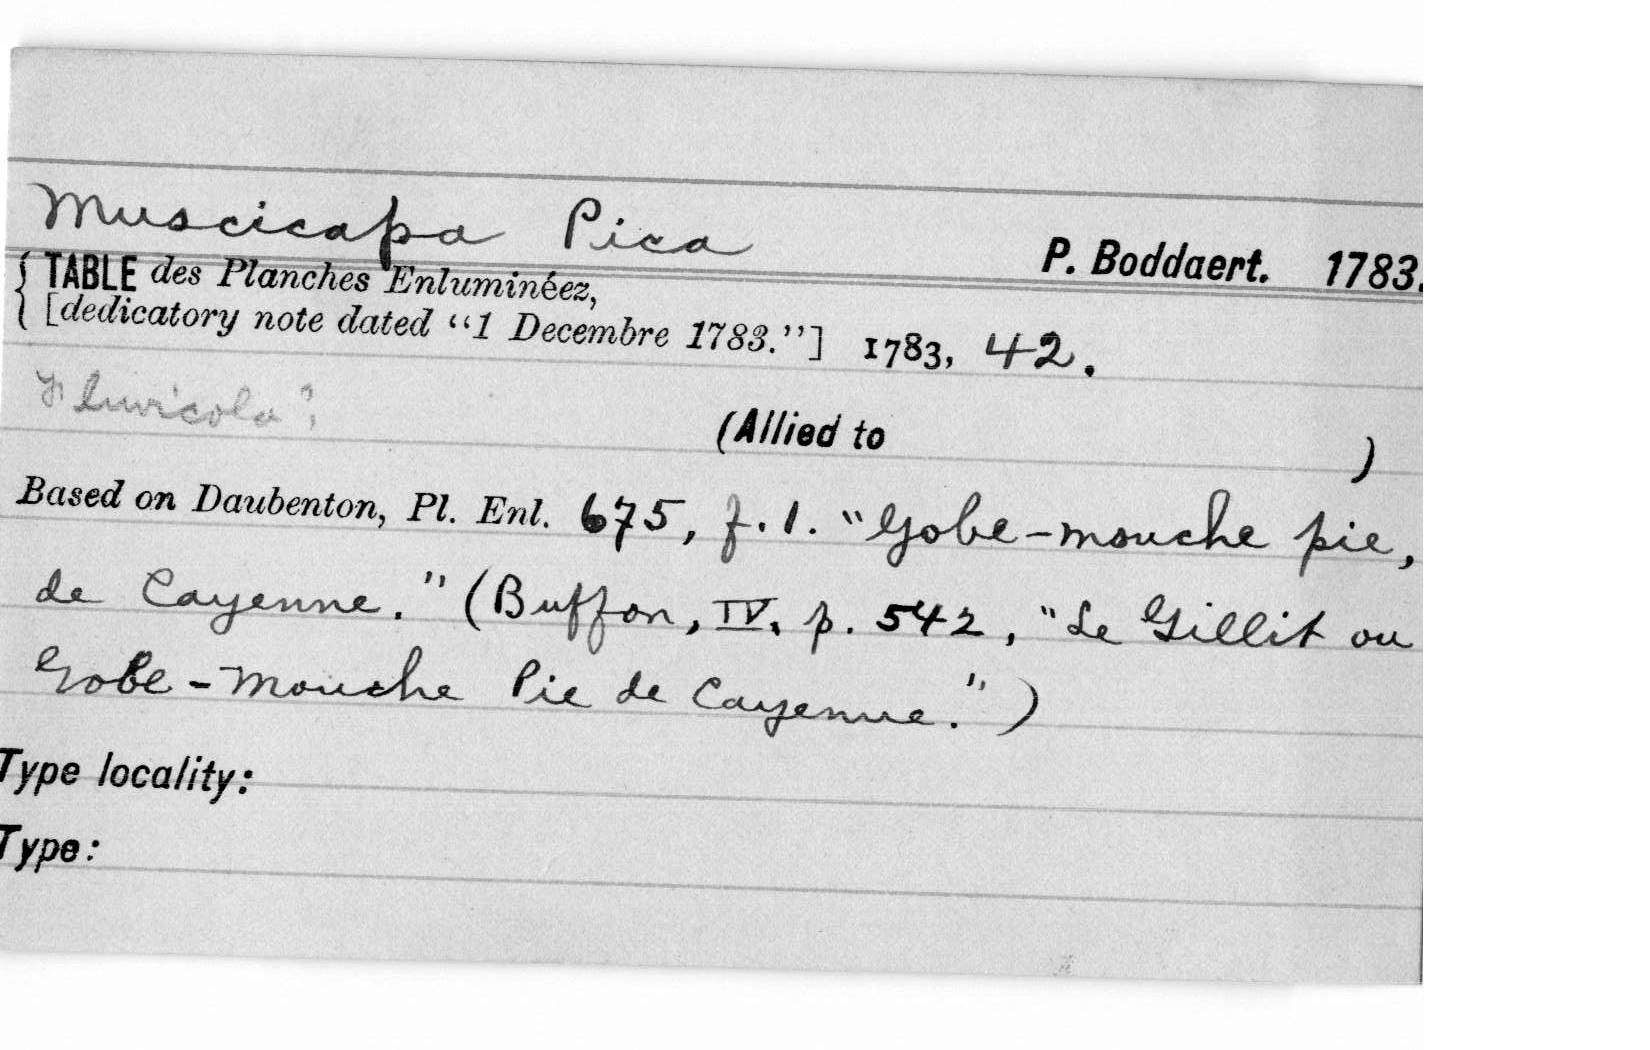 Muscicapa Pica
P. Boddaert. 1783.
{ TABLE des Planches Enluminéez,
[dedicatory note dated “1 Decembre 1783.”] 1783, 42.
Fluvicola?
(Allied to )
Based on Daubenton, Pl. Enl. 675, f. 1. "Gobe-mouche pie,
de Cayenne." (Buffon, IV, p. 542, "Le Gillit ou
Gobe-Mouche Pie de Cayenne.")
Type locality:
Type: